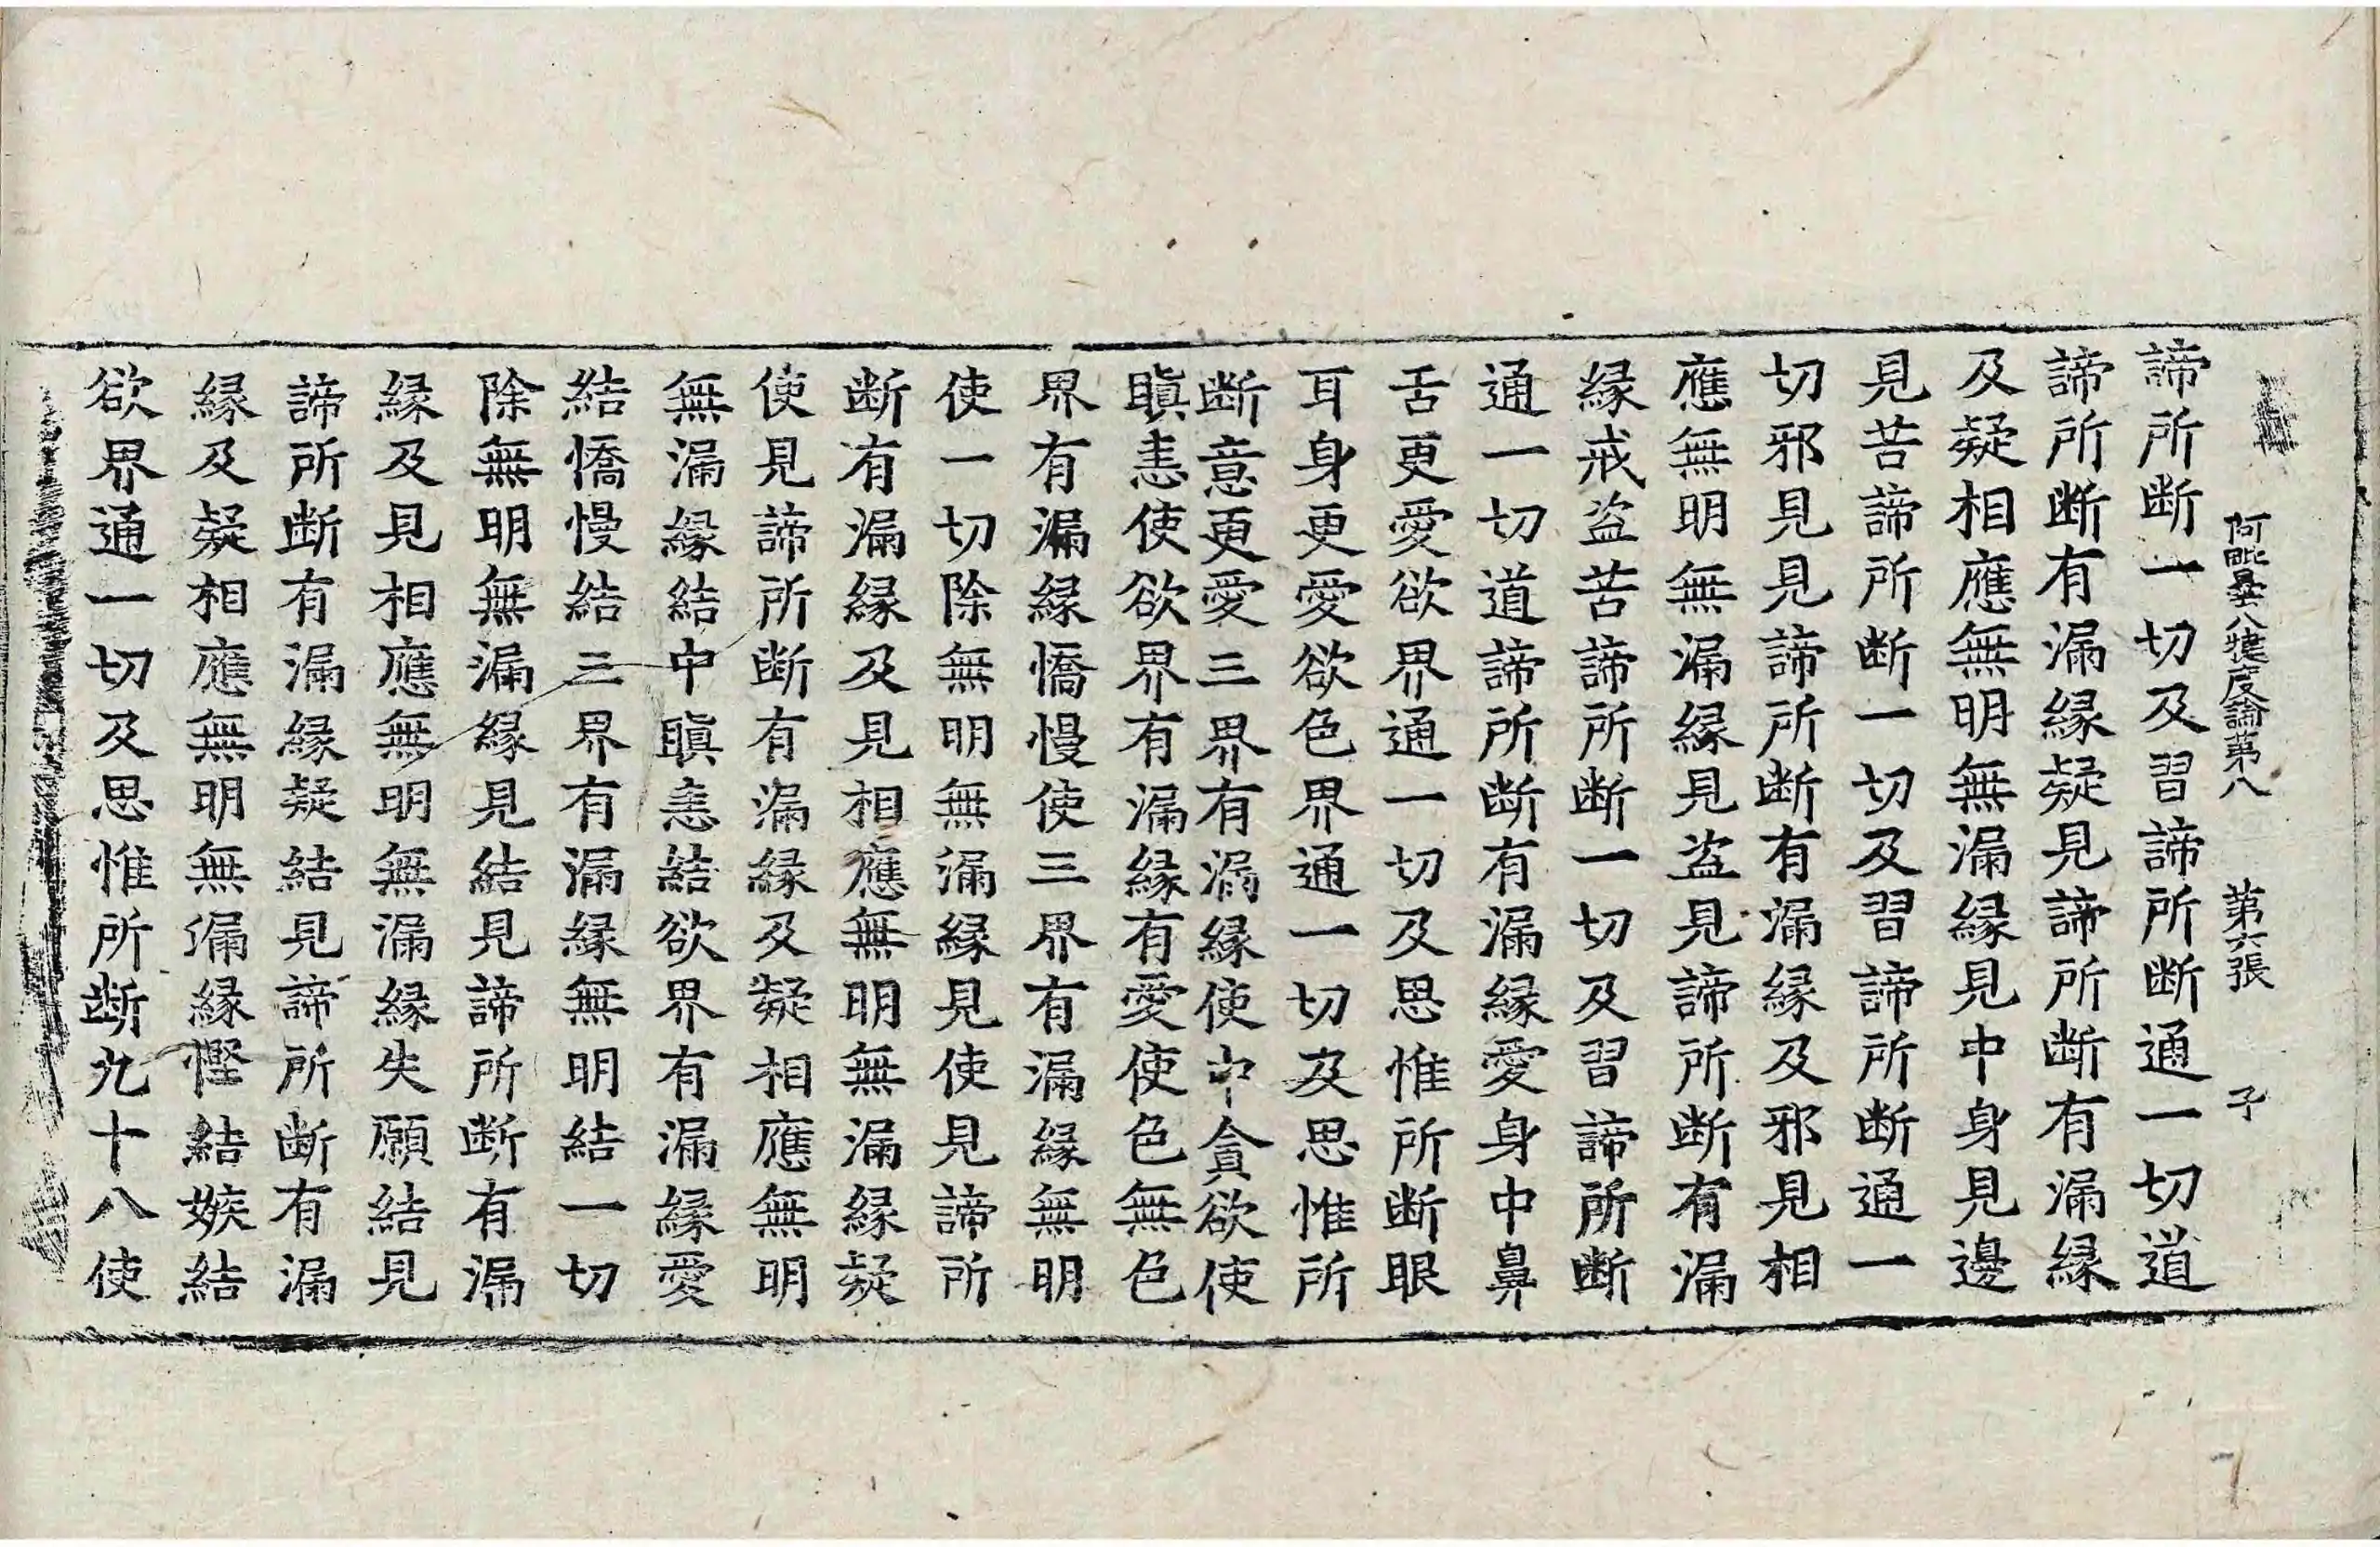 阿毗曇八犍度論第八　第六張　子
諦所断一切及習諦所断通一切道
諦所断有漏縁疑見諦所断有漏縁
及疑相應無明無漏縁見中身見邊
見苦諦所断一切及習諦所断通一
切邪見見諦所断有漏縁及邪見相
應無明無漏縁見盗見諦所断有漏
縁戒盗苦諦所断一切及習諦所断
通一切道諦所断有漏縁愛身中鼻
舌更愛欲界通一切及思惟所断眼
耳身更愛欲色界通一切及思惟所
断意更愛三界有漏縁使中貪欲使
瞋恚使欲界有漏縁有愛使色無色
界有漏縁憍慢使三界有漏縁無明
使一切除無明無漏縁見使見諦所
断有漏縁及見相應無明無漏縁疑
使見諦所断有漏縁及疑相應無明
無漏縁結中瞋恚結欲界有漏縁愛
結憍慢結三界有漏縁無明結一切
除無明無漏縁見結見諦所断有漏
縁及見相應無明無漏縁失願結見
諦所断有漏縁疑結見諦所断有漏
縁及疑相應無明無漏縁慳結嫉結
欲界通一切及思惟所断九十八使